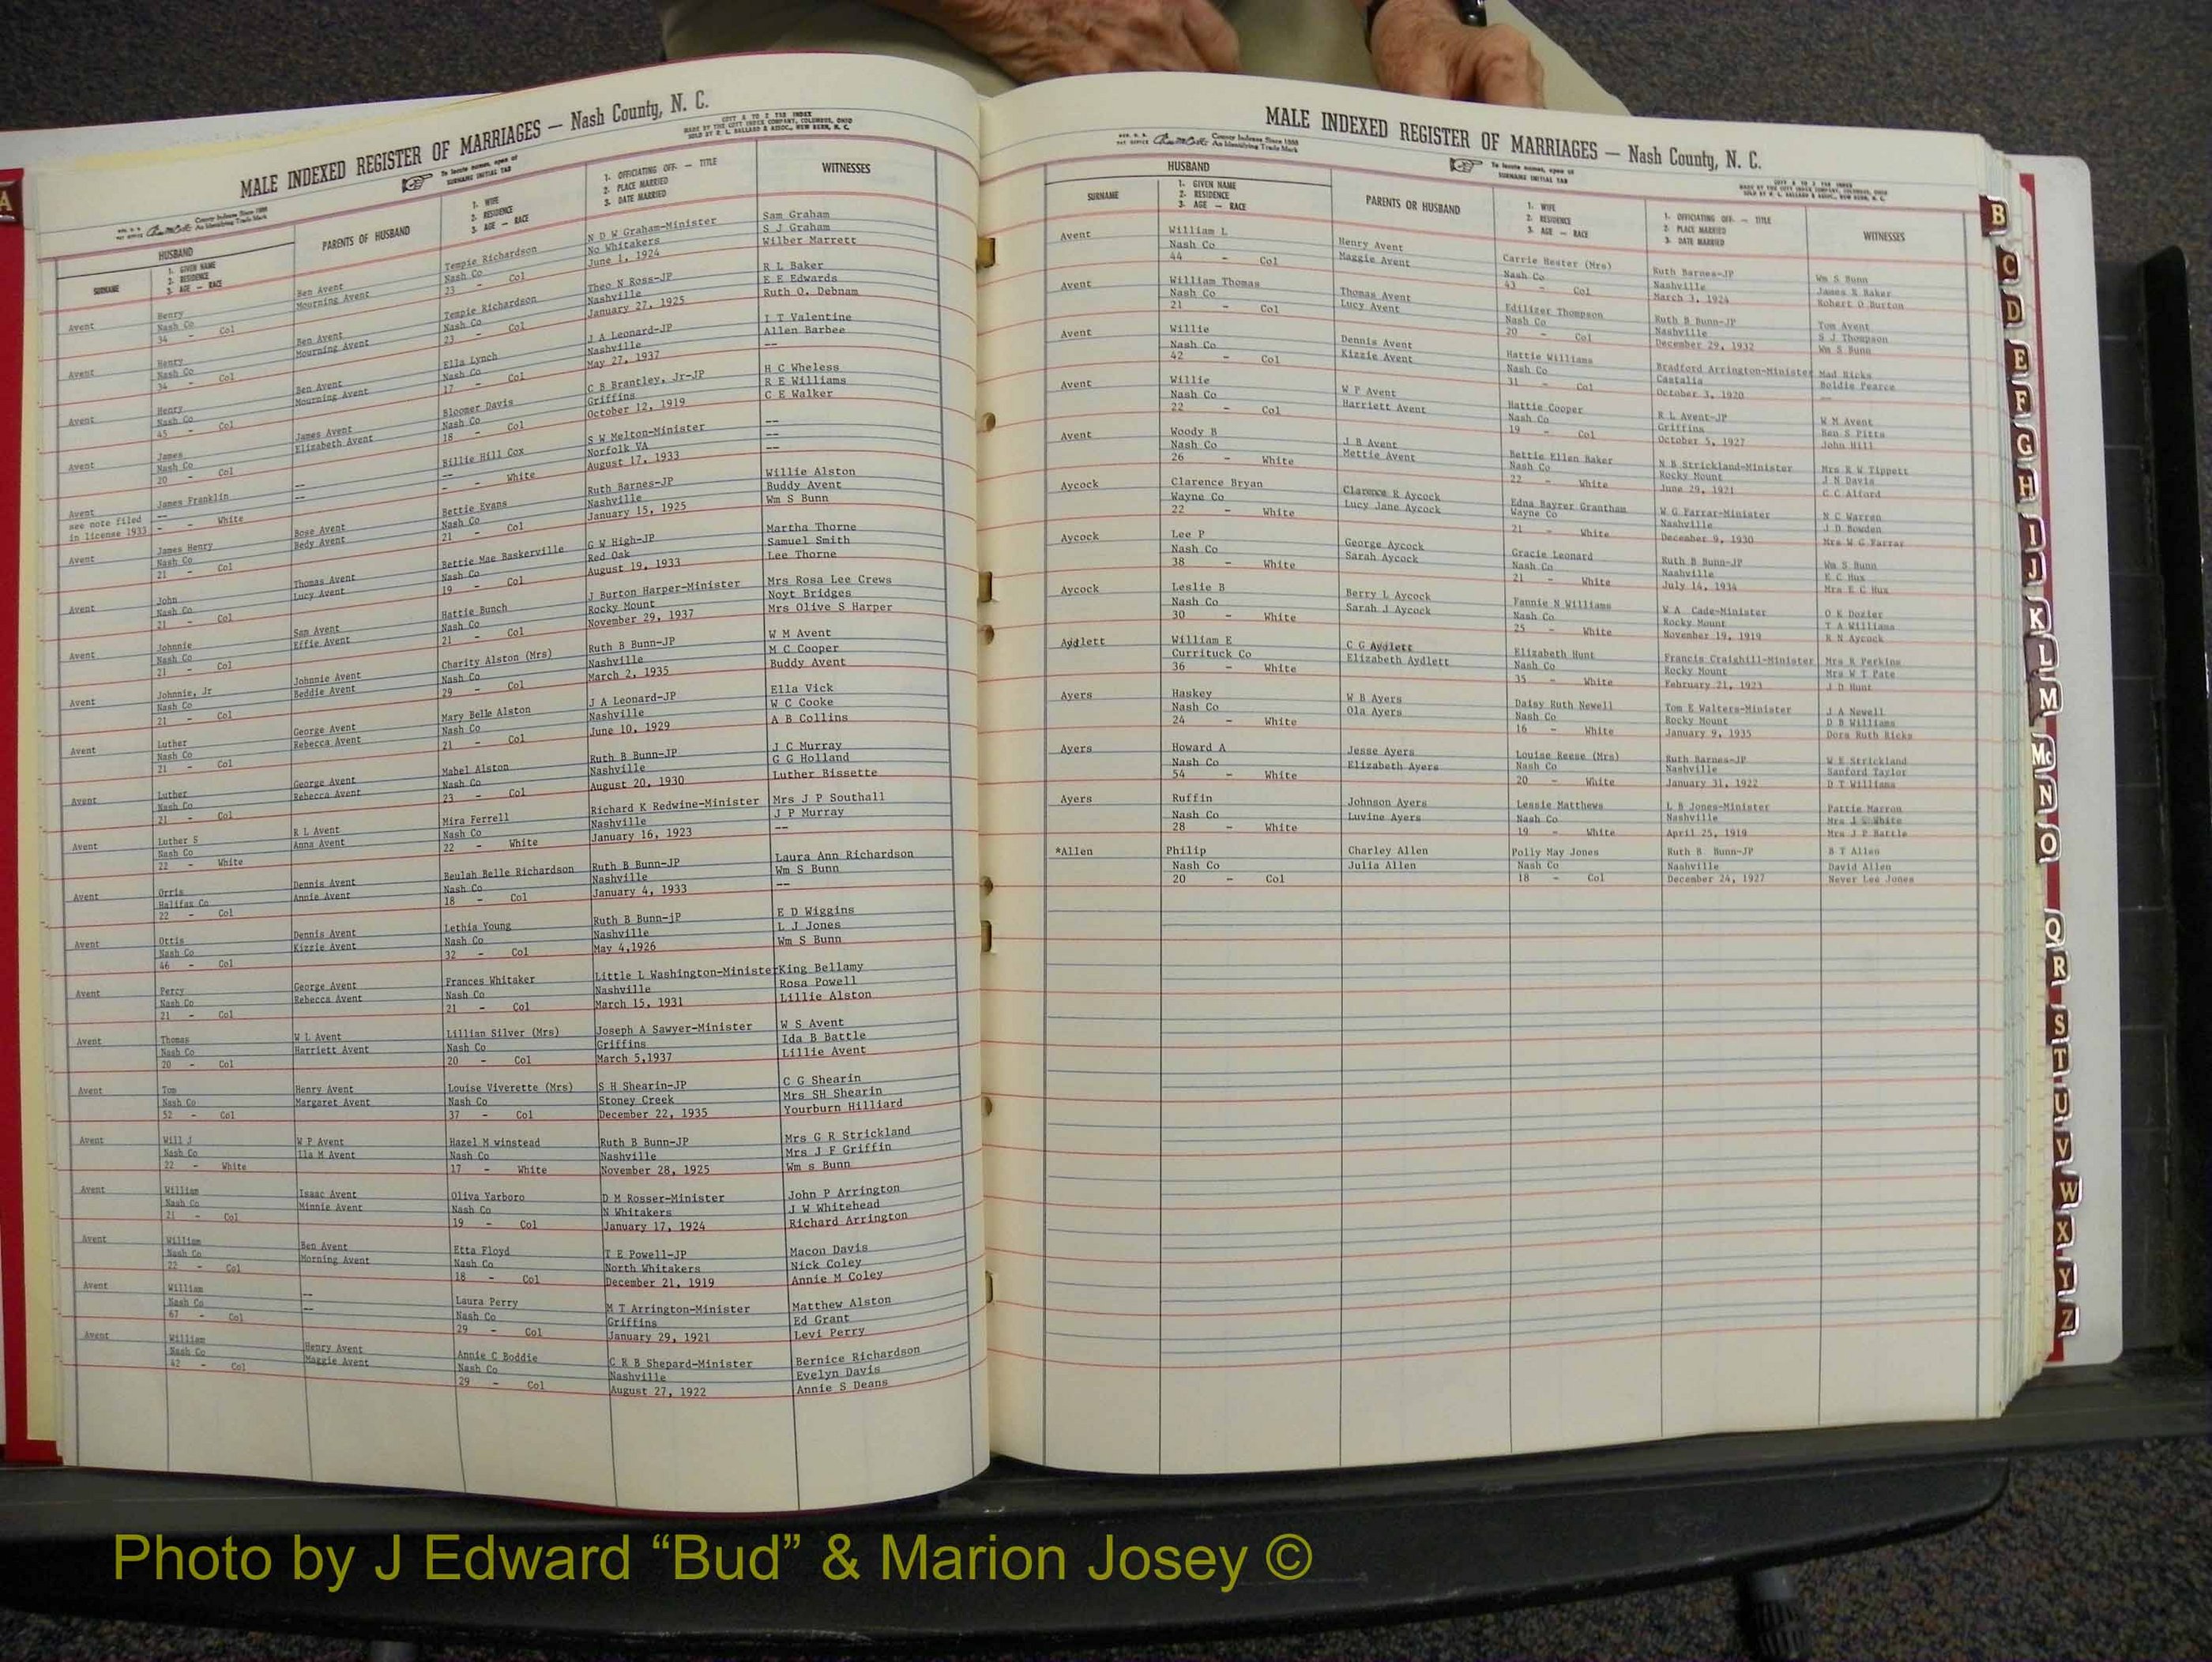 A
MALE INDEXED REGISTER OF MARRIAGES — Nash County, N. C.
County Indexes Since 1888
An Identifying Trade Mark
To locate names, open at
SURNAME INITIAL TAB
COTT A TO Z TAB INDEX
MADE BY THE COTT INDEX COMPANY, COLUMBUS, OHIO
SOLD BY R. L. BALLARD & ASSOC., NEW BERN, N. C.
HUSBAND
SURNAME
1. GIVEN NAME
2. RESIDENCE
3. AGE — RACE
PARENTS OF HUSBAND
1. WIFE
2. RESIDENCE
3. AGE — RACE
1. OFFICIATING OFF. — TITLE
2. PLACE MARRIED
3. DATE MARRIED
WITNESSES
Avent Henry Ben Avent Tempie Richardson N D W Graham-Minister Sam Graham
Nash Co Mourning Avent Nash Co No Whitakers S J Graham
34 - Col 23 - Col June 1, 1924 Wilber Marrett
Avent Henry Ben Avent Tempie Richardson Theo N Ross-JP R L Baker
Nash Co Mourning Avent Nash Co Nashville E E Edwards
34 - Col 23 - Col January 27, 1925 Ruth O. Debnam
Avent Henry Ben Avent Ella Lynch J A Leonard-JP I T Valentine
Nash Co Mourning Avent Nash Co Nashville Allen Barbee
45 - Col 17 - Col May 27, 1937 --
Avent James James Avent Bloomer Davis C B Brantley, Jr-JP H C Wheless
Nash Co Elizabeth Avent Nash Co Griffins R E Williams
20 - Col 18 - Col October 12, 1919 C E Walker
Avent James Franklin -- Billie Hill Cox S W Melton-Minister --
see note filed -- -- -- Norfolk VA --
in license 1933 - - White - - White August 17, 1933 --
Avent James Henry Bose Avent Bettie Evans Ruth Barnes-JP Willie Alston
Nash Co Bedy Avent Nash Co Nashville Buddy Avent
21 - Col 21 - Col January 15, 1925 Wm S Bunn
Avent John Thomas Avent Bettie Mae Baskerville G W High-JP Martha Thorne
Nash Co Lucy Avent Nash Co Red Oak Samuel Smith
21 - Col 19 - Col August 19, 1933 Lee Thorne
Avent Johnnie Sam Avent Hattie Bunch J Burton Harper-Minister Mrs Rosa Lee Crews
Nash Co Effie Avent Nash Co Rocky Mount Noyt Bridges
21 - Col 21 - Col November 29, 1937 Mrs Olive S Harper
Avent Johnnie, Jr Johnnie Avent Charity Alston (Mrs) Ruth B Bunn-JP W M Avent
Nash Co Beddie Avent Nash Co Nashville M C Cooper
21 - Col 29 - Col March 2, 1935 Buddy Avent
Avent Luther George Avent Mary Belle Alston J A Leonard-JP Ella Vick
Nash Co Rebecca Avent Nash Co Nashville W C Cooke
21 - Col 21 - Col June 10, 1929 A B Collins
Avent Luther George Avent Mabel Alston Ruth B Bunn-JP J C Murray
Nash Co Rebecca Avent Nash Co Nashville G G Holland
21 - Col 23 - Col August 20, 1930 Luther Bissette
Avent Luther S R L Avent Mira Ferrell Richard K Redwine-Minister Mrs J P Southall
Nash Co Anna Avent Nash Co Nashville J P Murray
22 - White 22 - White January 16, 1923 --
Avent Orris Dennis Avent Beulah Belle Richardson Ruth B Bunn-JP Laura Ann Richardson
Halifax Co Annie Avent Nash Co Nashville Wm S Bunn
22 - Col 18 - Col January 4, 1933 --
Avent Ottis Dennis Avent Lethia Young Ruth B Bunn-jP E D Wiggins
Nash Co Kizzie Avent Nash Co Nashville L J Jones
46 - Col 32 - Col May 4,1926 Wm S Bunn
Avent Percy George Avent Frances Whitaker Little L Washington-Minister King Bellamy
Nash Co Rebecca Avent Nash Co Nashville Rosa Powell
21 - Col 21 - Col March 15, 1931 Lillie Alston
Avent Thomas W L Avent Lillian Silver (Mrs) Joseph A Sawyer-Minister W S Avent
Nash Co Harriett Avent Nash Co Griffins Ida B Battle
20 - Col 20 - Col March 5,1937 Lillie Avent
Avent Tom Henry Avent Louise Viverette (Mrs) S H Shearin-JP C G Shearin
Nash Co Margaret Avent Nash Co Stoney Creek Mrs SH Shearin
52 - Col 37 - Col December 22, 1935 Yourburn Hilliard
Avent Will J W P Avent Hazel M winstead Ruth B Bunn-JP Mrs G R Strickland
Nash Co Ila M Avent Nash Co Nashville Mrs J F Griffin
22 - White 17 - White November 28, 1925 Wm s Bunn
Avent William Isaac Avent Oliva Yarboro D M Rosser-Minister John P Arrington
Nash Co Minnie Avent Nash Co N Whitakers J W Whitehead
21 - Col 19 - Col January 17, 1924 Richard Arrington
Avent William Ben Avent Etta Floyd T E Powell-JP Macon Davis
Nash Co Morning Avent Nash Co North Whitakers Nick Coley
22 - Col 18 - Col December 21, 1919 Annie M Coley
Avent William -- Laura Perry M T Arrington-Minister Matthew Alston
Nash Co -- Nash Co Griffins Ed Grant
67 - Col 29 - Col January 29, 1921 Levi Perry
Avent William Henry Avent Annie C Boddie C R B Shepard-Minister Bernice Richardson
Nash Co Maggie Avent Nash Co Nashville Evelyn Davis
42 - Col 29 - Col August 27, 1922 Annie S Deans
MALE INDEXED REGISTER OF MARRIAGES — Nash County, N. C.
County Indexes Since 1888
An Identifying Trade Mark
To locate names, open at
SURNAME INITIAL TAB
COTT A TO Z TAB INDEX
MADE BY THE COTT INDEX COMPANY, COLUMBUS, OHIO
SOLD BY R. L. BALLARD & ASSOC., NEW BERN, N. C.
HUSBAND
SURNAME
1. GIVEN NAME
2. RESIDENCE
3. AGE — RACE
PARENTS OF HUSBAND
1. WIFE
2. RESIDENCE
3. AGE — RACE
1. OFFICIATING OFF. — TITLE
2. PLACE MARRIED
3. DATE MARRIED
WITNESSES
Avent William L Henry Avent Carrie Hester (Mrs) Ruth Barnes-JP Wm S Bunn
Nash Co Maggie Avent Nash Co Nashville James R Baker
44 - Col 43 - Col March 3, 1924 Robert O Burton
Avent William Thomas Thomas Avent Edilizer Thompson Ruth B Bunn-JP Tom Avent
Nash Co Lucy Avent Nash Co Nashville S J Thompson
21 - Col 20 - Col December 29, 1932 Wm S Bunn
Avent Willie Dennis Avent Hattie Williams Bradford Arrington-Minister Mad Ricks
Nash Co Kizzie Avent Nash Co Castalia Boldie Pearce
42 - Col 31 - Col October 3, 1920 --
Avent Willie W P Avent Hattie Cooper R L Avent-JP W M Avent
Nash Co Harriett Avent Nash Co Griffins Ben S Pitts
22 - Col 19 - Col October 5, 1927 John Hill
Avent Woody B J B Avent Bettie Ellen Baker N B Strickland-Minister Mrs R W Tippett
Nash Co Mettie Avent Nash Co Rocky Mount J N Davis
26 - White 22 - White June 29, 1921 C C Alford
Aycock Clarence Bryan Clarence R Aycock Edna Bayrer Grantham W G Farrar-Minister N C Warren
Wayne Co Lucy Jane Aycock Wayne Co Nashville J D Bowden
22 - White 21 - White December 9, 1930 Mrs W G Farrar
Aycock Lee P George Aycock Gracie Leonard Ruth B Bunn-JP Wm S Bunn
Nash Co Sarah Aycock Nash Co Nashville E C Hux
38 - White 21 - White July 14, 1934 Mrs E C Hux
Aycock Leslie B Berry L Aycock Fannie N Williams W A Cade-Minister O K Dozier
Nash Co Sarah J Aycock Nash Co Rocky Mount T A Williams
30 - White 25 - White November 19, 1919 R N Aycock
Aydlett William E C G Aydlett Elizabeth Hunt Francis Craighill-Minister Mrs R Perkins
Currituck Co Elizabeth Aydlett Nash Co Rocky Mount Mrs W T Pate
36 - White 35 - White February 21, 1923 J D Hunt
Ayers Haskey W B Ayers Daisy Ruth Newell Tom E Walters-Minister J A Newell
Nash Co Ola Ayers Nash Co Rocky Mount D B Williams
24 - White 16 - White January 9, 1935 Dora Ruth Ricks
Ayers Howard A Jesse Ayers Louise Reese (Mrs) Ruth Barnes-JP W E Strickland
Nash Co Elizabeth Ayers Nash Co Nashville Sanford Taylor
54 - White 20 - White January 31, 1922 D T Williams
Ayers Ruffin Johnson Ayers Lessie Matthews L B Jones-Minister Pattie Marron
Nash Co Luvine Ayers Nash Co Nashville Mrs J G White
28 - White 19 - White April 25, 1919 Mrs J P Battle
*Allen Philip Charley Allen Polly May Jones Ruth B Bunn-JP B T Allen
Nash Co Julia Allen Nash Co Nashville David Allen
20 - Col 18 - Col December 24, 1927 Never Lee Jones
B
C
D
E
F
G
H
I
J
K
L
M
Mc
N
O
Q
R
S
T
U
V
W
X
Y
Z
Photo by J Edward “Bud” & Marion Josey ©